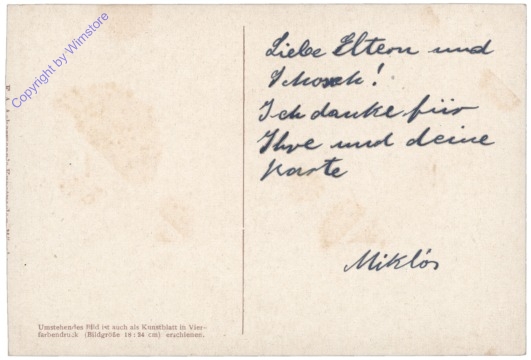 Copyright by Wimstore
Liebe Eltern und
Schosch!
Ich danke für
Ihre und deine
Karte
Miklós
Umstehendes Bild ist auch als Kunstblatt in Vier-
farbendruck (Bildgröße 18:24 cm) erschienen.